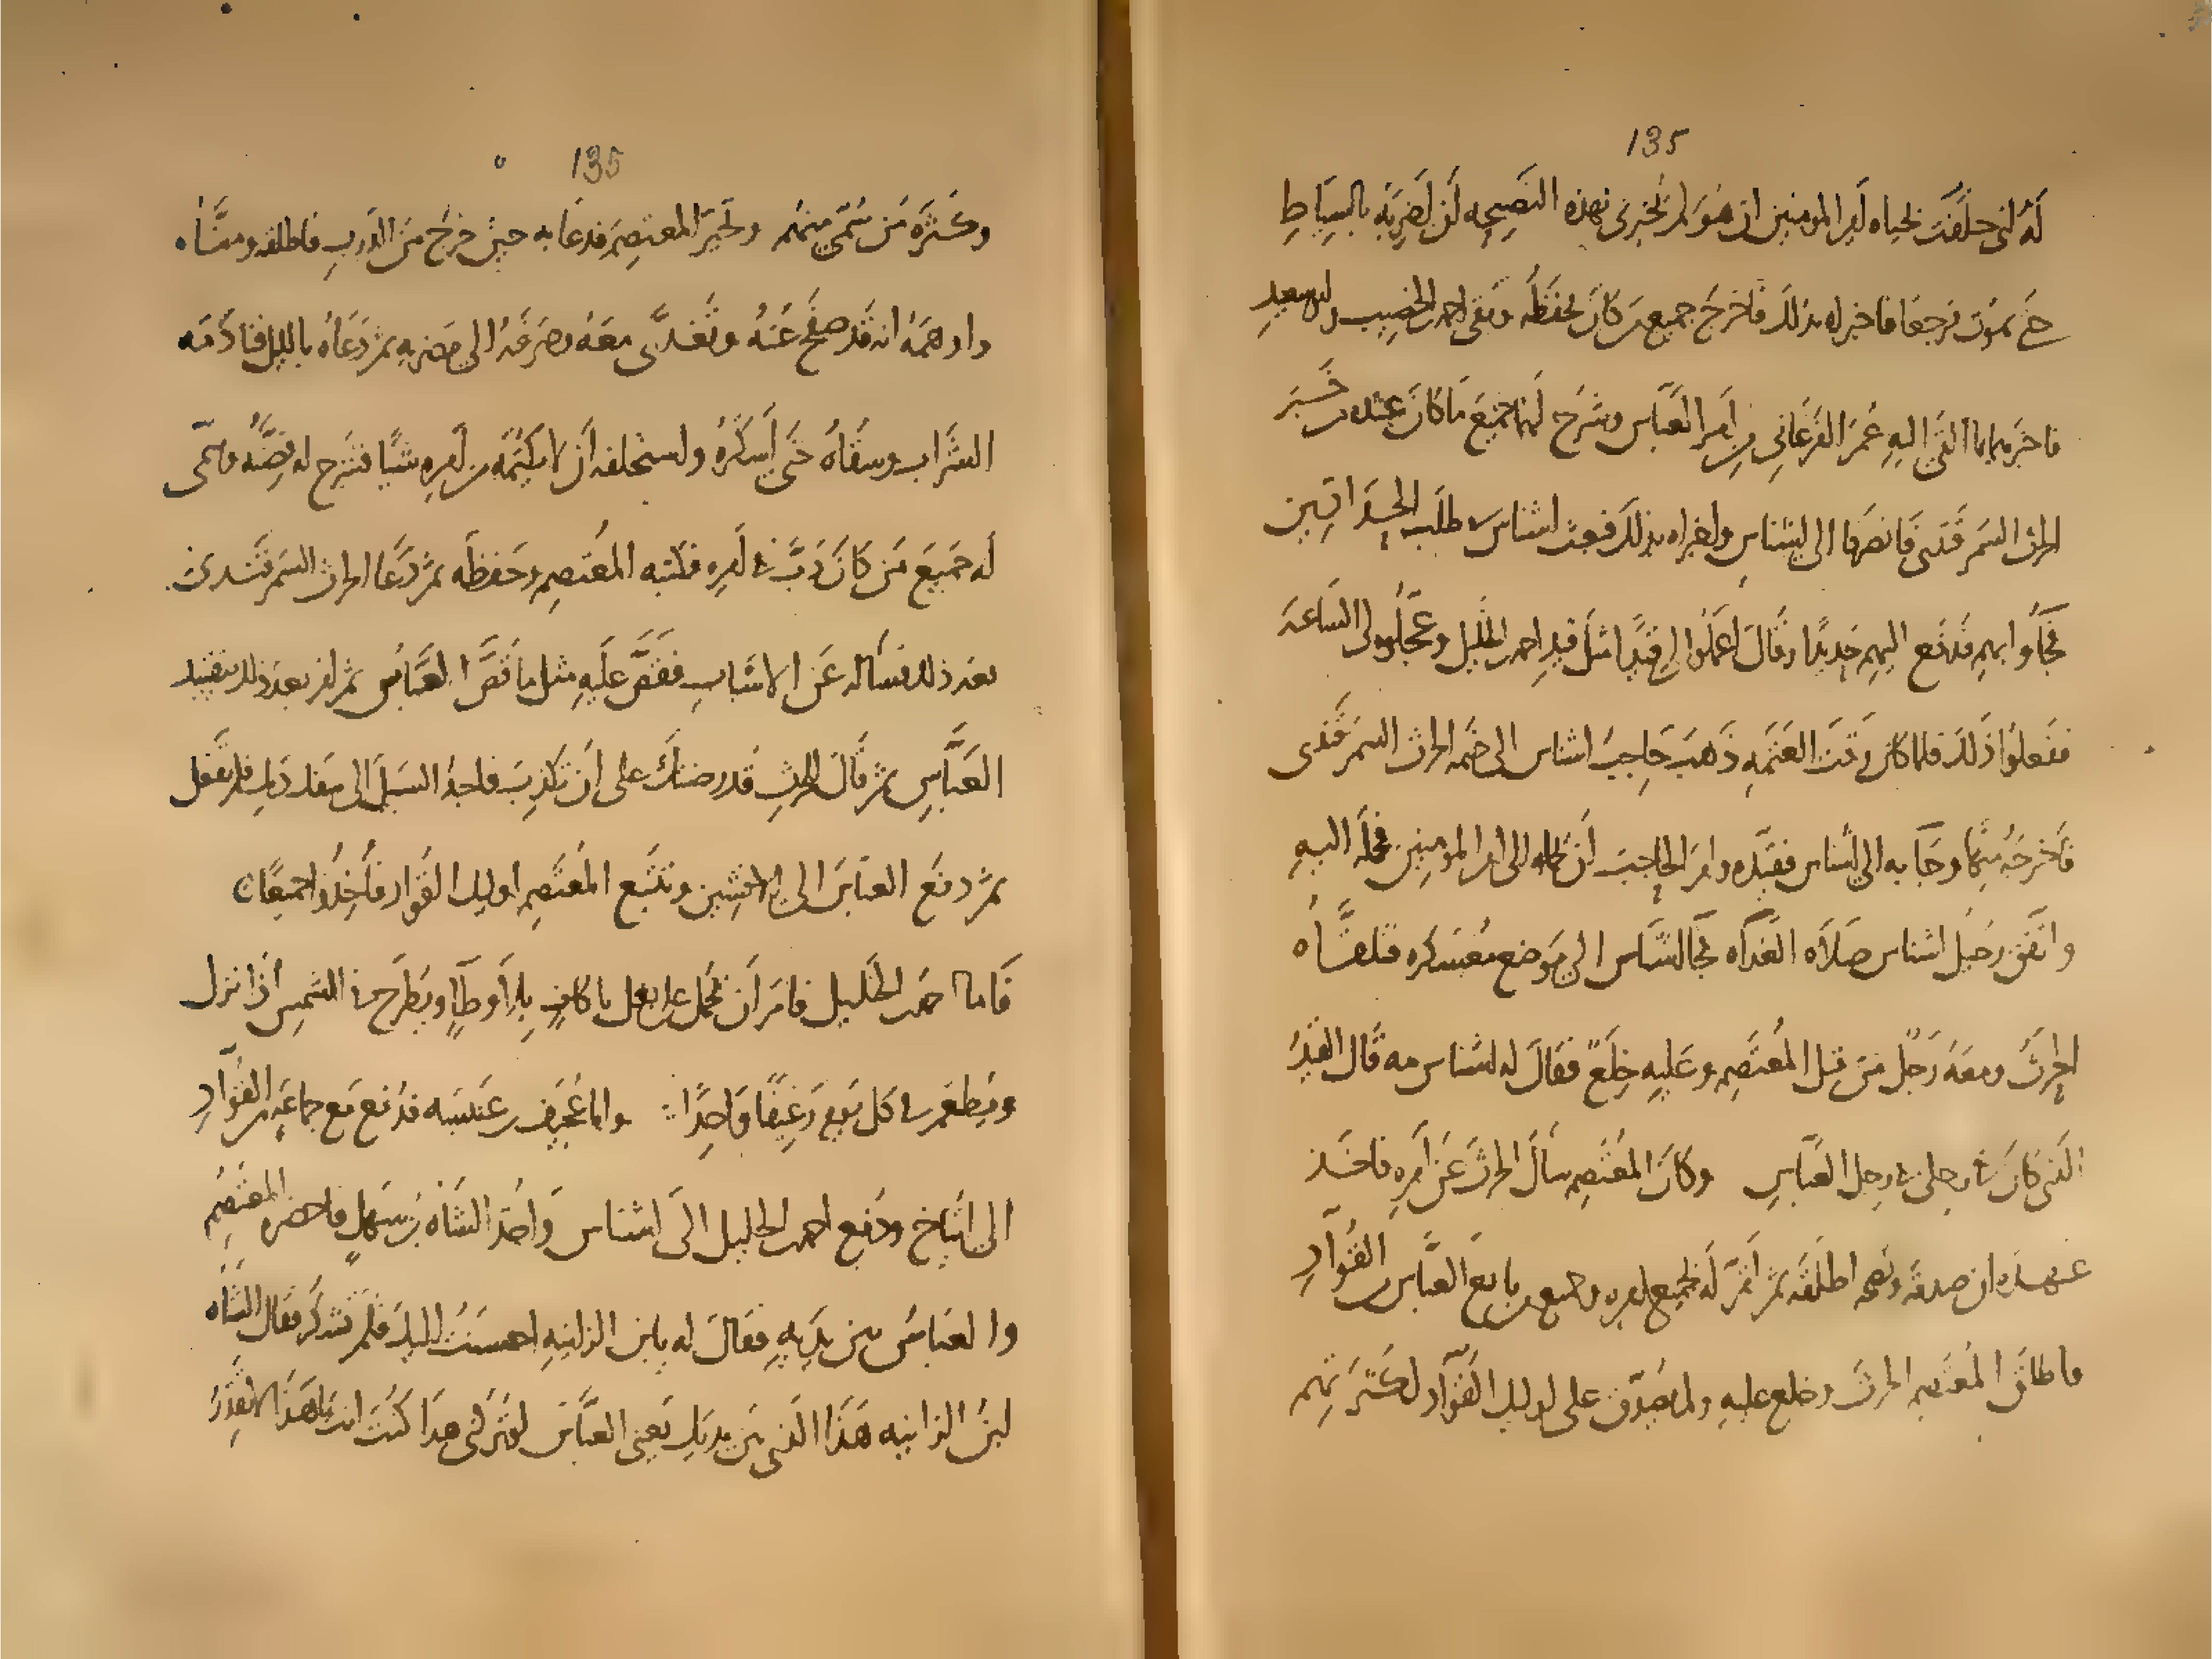 135
له انى حلفت بحياه امير المومنين ان هو لم يخبرنى بهذه النصيحه لن لضربنه بالسياط
حتى يموت فرجعا فاخبراه بذلك فاخرج جميع من كان يحفظه وبقى احمد بن الخصيب وابو سعيد
فاخبرهما بما القى اليه عمر الفرغانى من امر العباس وشرح لهما جميع ما كان عنده من خبر
الحرث السمرقندى فانصرفا الى اشناس واخبراه بذلك فبعث اشناس فى طلب الحدادين
فجاوا بهم فدفع اليهم حديدا وقال اعملوا لى قيدا مثل قيد احمد بن الخليل وعجلوه لى الساعه
ففعلوا ذلك فلما كان وقت العتمه ذهب حاجب اشناس الى خيمه الحرث السمرقندى
فاخرجه منها وجا به الى اشناس فقيده وامر الحاجب ان يحمله الى امير المومنين فحمله اليه
واتفق رحيل اشناس صلاه الغداه فجا اشناس الى موضع معسكره فتلقاه
الحرث ومعه رجل من قبل المعتصم وعليه خلع فقال له اشناس مه قال القيد
الذى كان فى رجلى فى رجل العباس وكان المعتصم سال الحرث عن امره فاخذ
عهده ان صدقه ونصحه اطلقه ثم اقر له بجميع امره وجميع من بايع العباس من القواد
فاطلق المعتصم الحرث وخلع عليه ولم يصدق على اوليك القواد لكثرتهم
135
وكثره من سمى منهم وتحير المعتصم فدعا به حين خرج من الدرب فاطلقه ومناه
واوهمه انه قد صفح عنه وتغدى معه وصرفه الى مضربه ثم دعاه بالليل فنادمه
الشراب وسقاه حتى اسكره واستحلفه ان لا يكتمه من امره شيا فشرح له قصته وسمى
له جميع من كان دب فى امره فكتبه المعتصم وحفظه ثم دعا الحرث السمرقندى
بعد ذلك فساله عن الاسباب فقص عليه مثل ما قص العباس ثم امر بعد ذلك بتقييد
العباس ثم قال للحرث قد رضتك على ان تكذب فاجد السبيل الى سفك دمك فلم تفعل
ثم دفع العباس الى الافشين وتتبع المعتصم اوليك القواد فاخذوا جميعا
فاما احمد بن الخليل فامر ان يحمل على بغل باكاف بلا وطا ويطرح فى الشمس اذا نزل
ويطعم فى كل يوم رغيفا واحدا واما عجيف بن عنبسه فدفع مع جماعه من القواد
الى ايتاخ ودفع احمد بن الخليل الى اشناس واخذ الشاه بن سهل فاحضره المعتصم
والعباس بين يديه فقال له يابن الزانيه احسنت اليك فلم تشكر فقال الشاه
ابن الزانيه هذا الذى بين يديك يعنى العباس لو تركنى هذا كنت انت الساعه لا تقدر